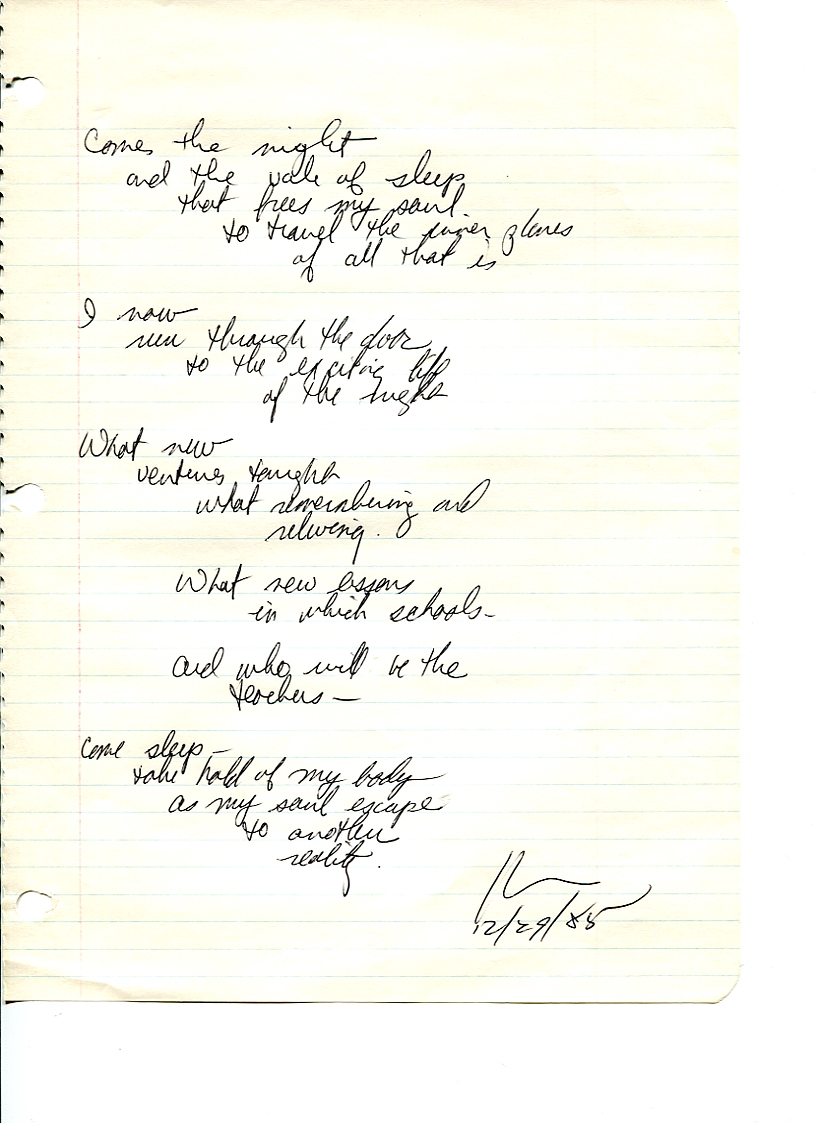 Comes the night
and the vale of sleep
that frees my soul
to travel the inner planes
of all that is
I now
run through the door
to the exciting life
of the night
What new
ventures tonight
what remembering and
reliving.
What new lessons
in which schools-
and who will be the
teachers —
Come sleep -
take hold of my body
as my soul escape
to another
reality.
12/29/85